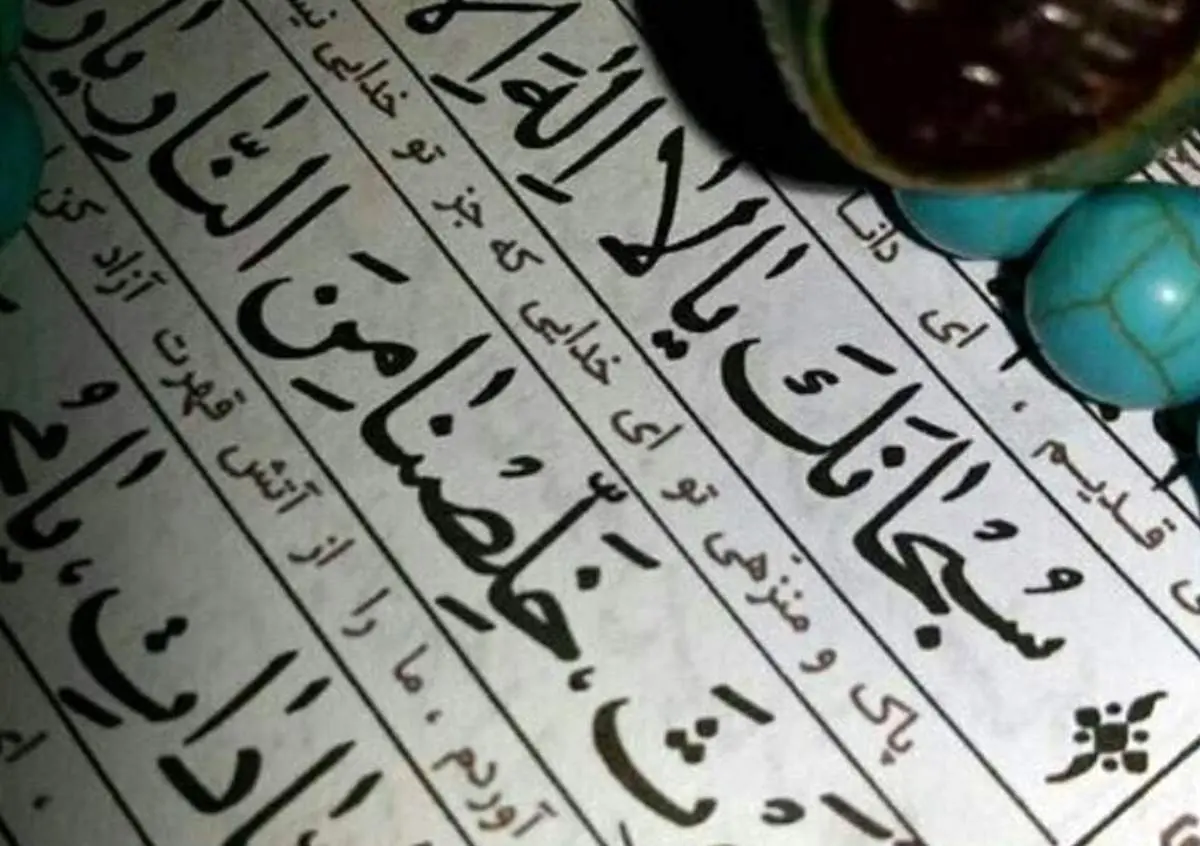 قدیم ، ای دانا
سُبْحٰانَكَ يٰا لٰا اِلٰهَ
پاک و منزهی تو ای خدایی که جز تو خدایی
خَلِّصْنٰا مِنَ النّٰارِ يٰا
آوردم ، ما را از آتش قهرت آزاد کن
ادٰاتِ، يٰا
، ای